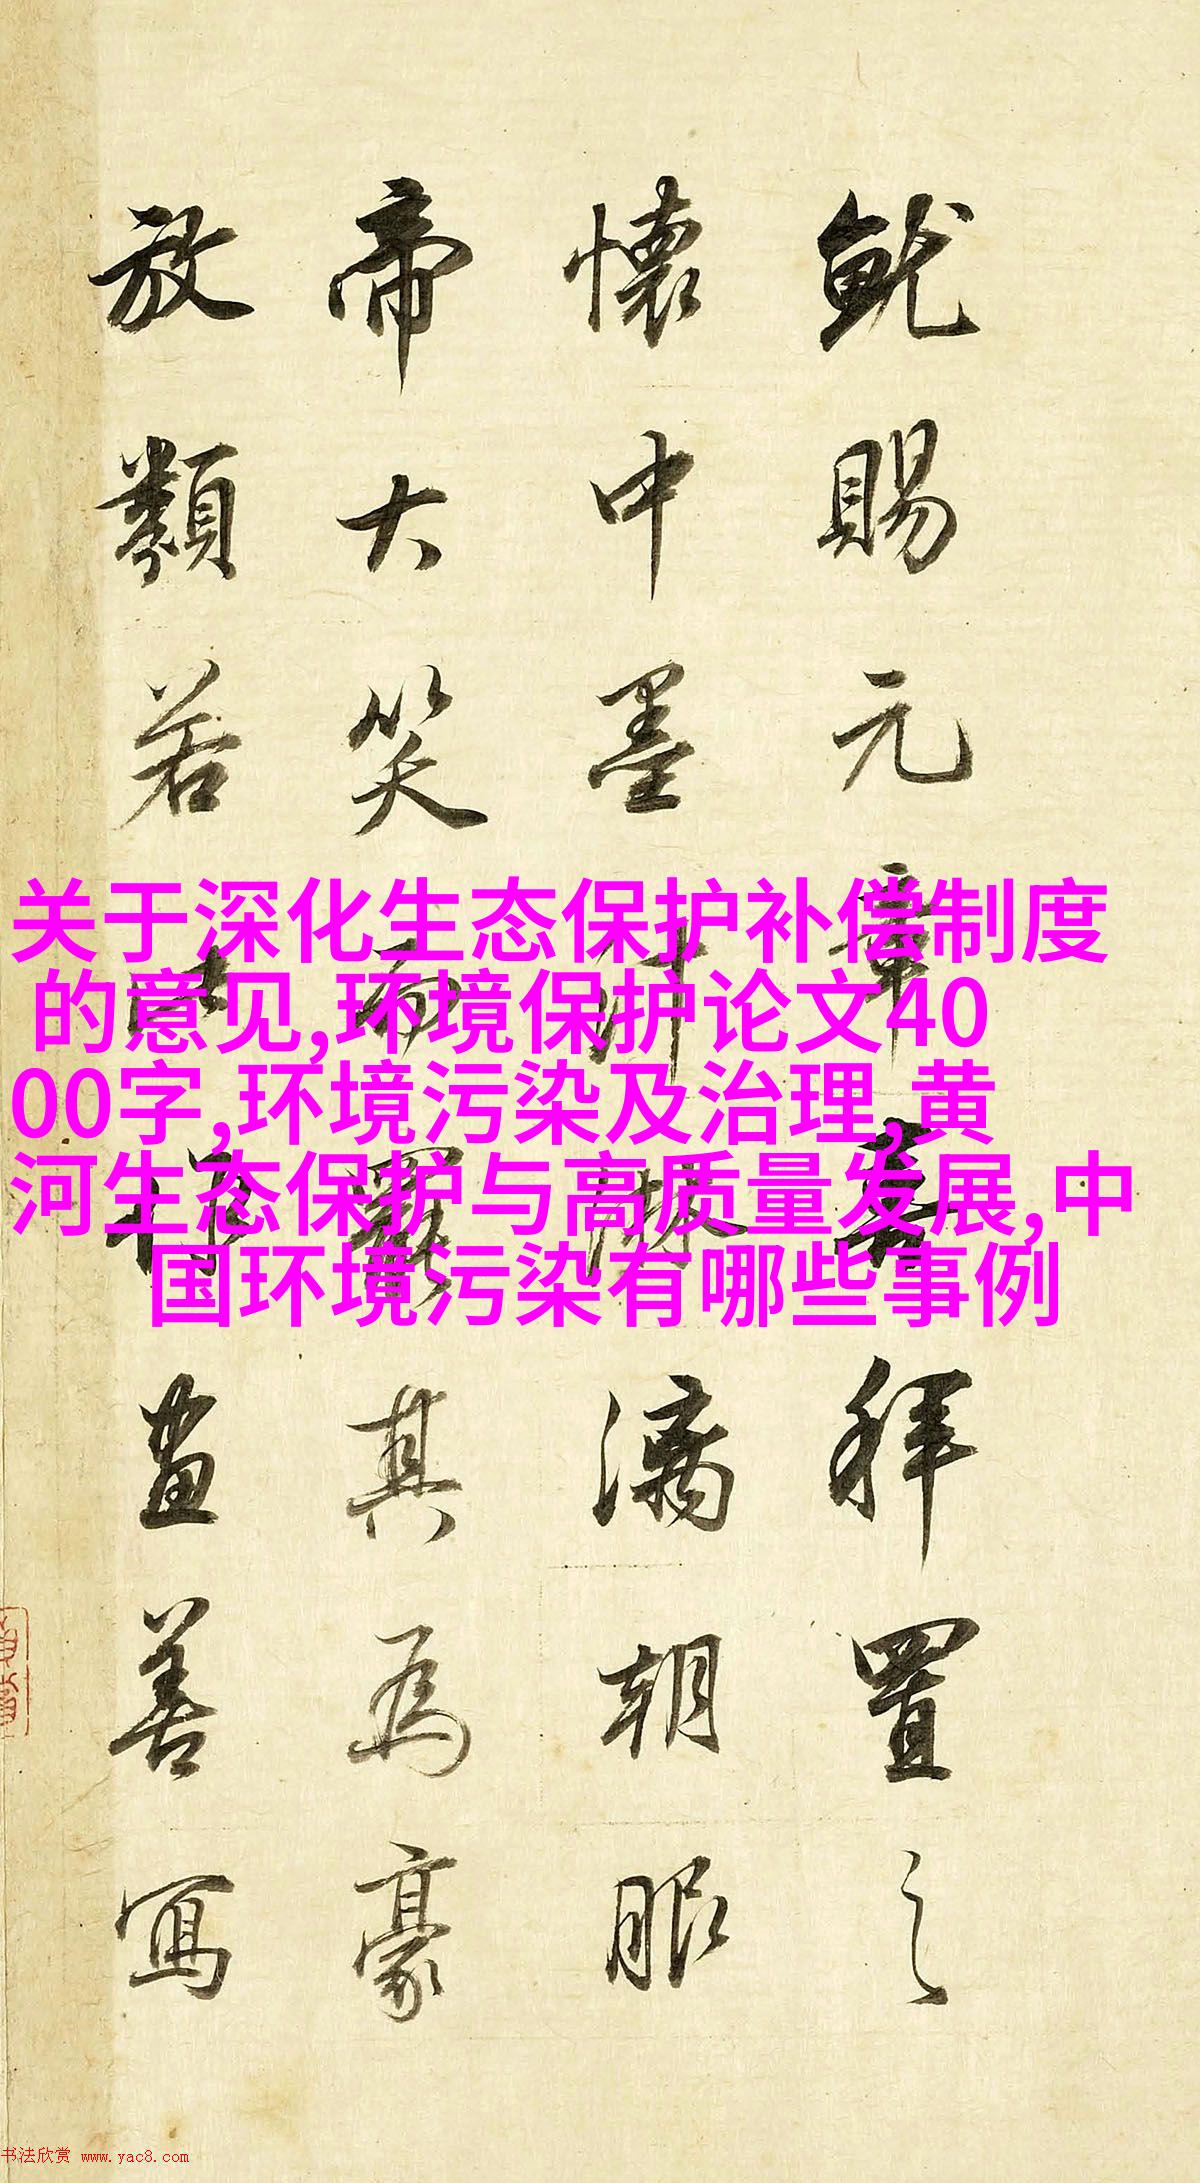 就賜元章拜置之
懷中墨汁淋漓朝服
帝大笑而罷其為豪
放類若此作畫善寫
关于深化生态保护补偿制度
的意见,环境保护论文40
00字,环境污染及治理,黄
河生态保护与高质量发展,中
国环境污染有哪些事例
书法欣赏 www.yac8.com